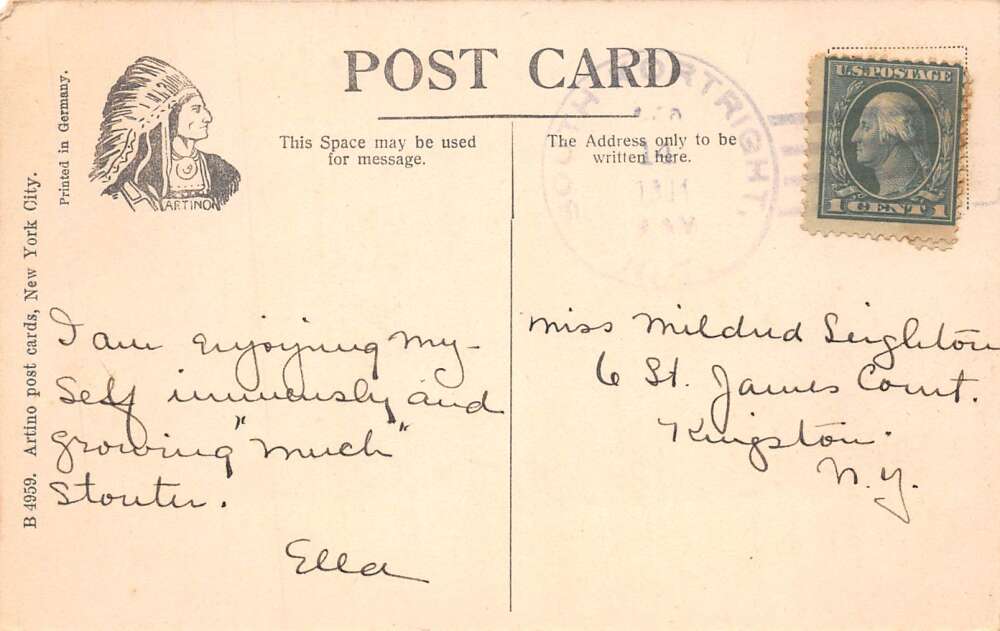 POST CARD
Printed in Germany.
B 4959. Artino post cards, New York City.
ARTINO
This Space may be used
for message.
The Address only to be
written here.
SOUTH KORTRIGHT,
14
N.Y.
U.S. POSTAGE
1 CENT 1
I am enjoying my-
self immensely and
growing "much"
stouter.
Ella
Miss Mildred Leighton
6 St. James Court.
Kingston.
N.Y.